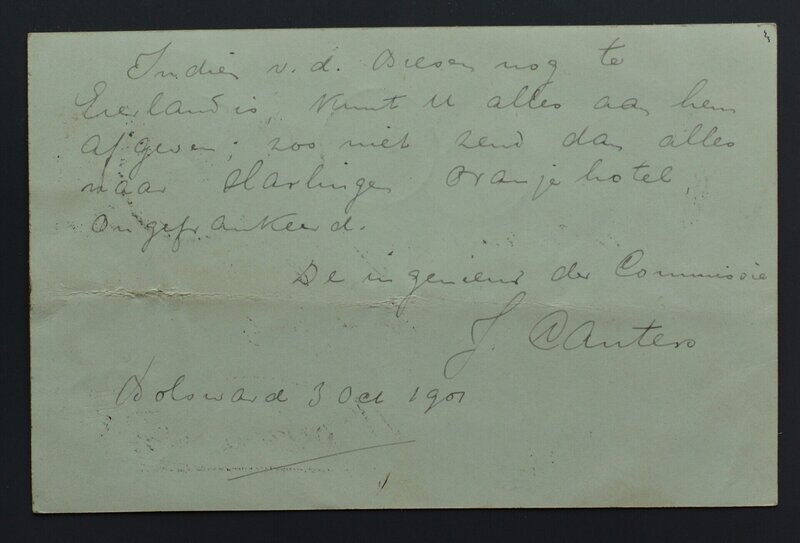 Indien v.d. Diesen nog te
Eierland is, kunt U alles aan hem
afgeven; zoo niet zend dan alles
naar Harlingen Oranje hotel,
ongefrankeerd.
De ingenieur der Commissie
J. Canters
Bolsward 3 Oct 1901